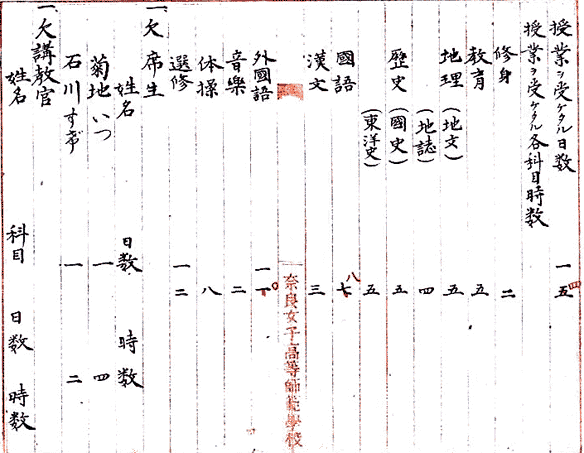 授業ヲ受ケタル日数 一五 四
授業ヲ受ケタル各科目時数
修身 二
教育 五
地理(地文) 五
(地誌) 四
歴史(國史) 五
(東洋史) 五
國語 七 八
漢文 三
奈良女子高等師範學校
外國語 一一 〇
音樂 二
体操 八
選修 一二
一、欠席生
姓名 日数 時数
菊地いつ 一 四
石川すぎ 一 二
一、欠講教官
姓名 科目 日数 時数